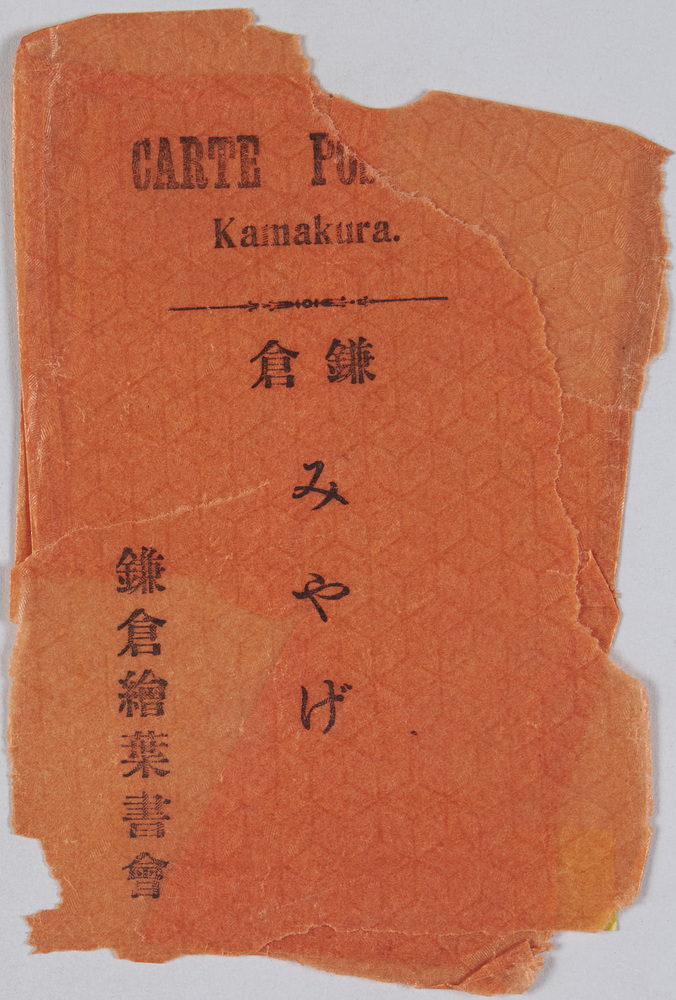 CARTE Po
Kamakura.
鎌倉
みやげ
鎌倉繪葉書會